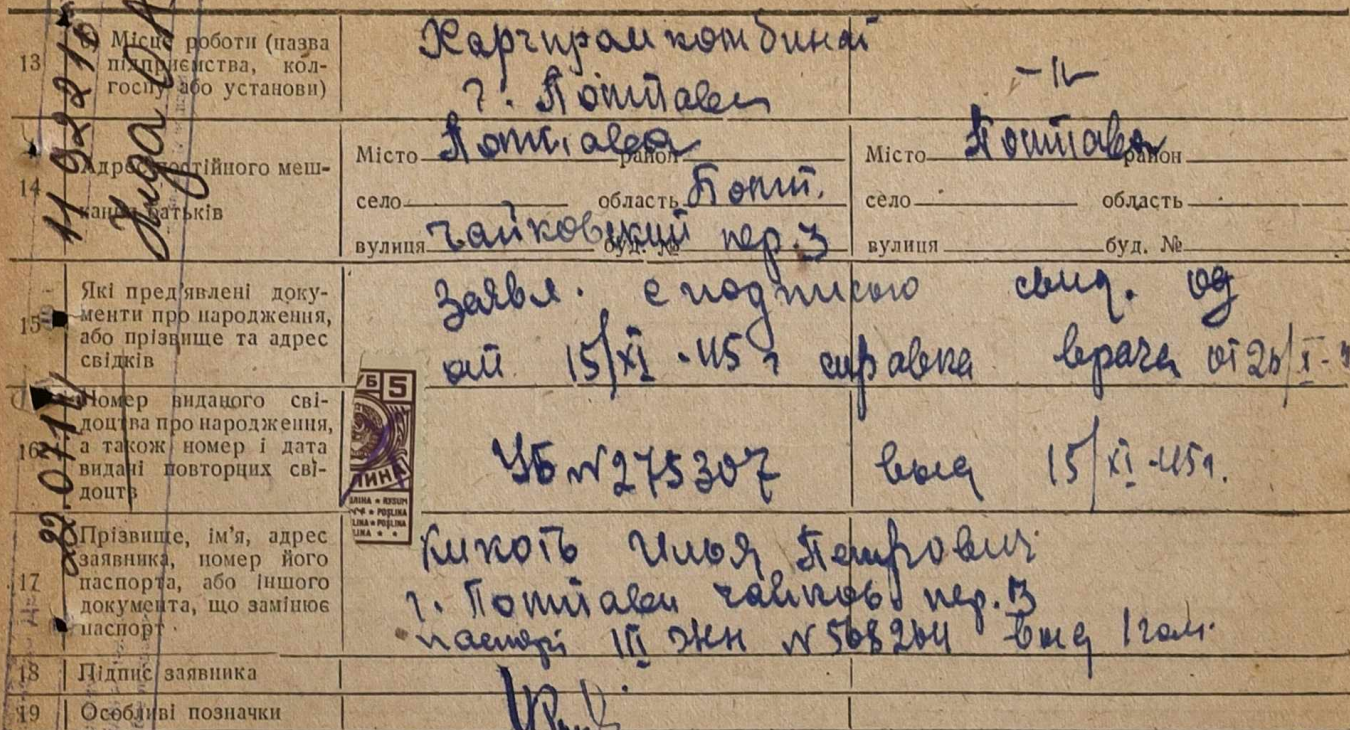 13 Місце роботи (назва
підприємства, кол-
госпу або установи)
Харчпромкомбинат
г. Полтавы
-"-
14 Адрес постійного меш-
кання батьків
Місто Полтава район
село область Полт.
вулиця Чайковский буд. № пер. 3
Місто Полтава район
село область
вулиця буд. №
15 Які пред'явлені доку-
менти про народження,
або прізвище та адрес
свідків
Заявл. с подписью
от 15/XI-45 г справка врача от
16 Номер виданого сві-
доцтва про народження,
а також номер і дата
видані повторцих сві-
доцтв
УБ №275307 выд 15/XI-45г.
5
17 Прізвище, ім'я, адрес
заявника, номер його
паспорта, або іншого
документа, що замінює
паспорт
Кикоть Илья Петрович
г. Полтавы Чайков. пер. 3
паспорт III ЖН №568264 выд
18 Підпис заявника
19 Особливі позначки